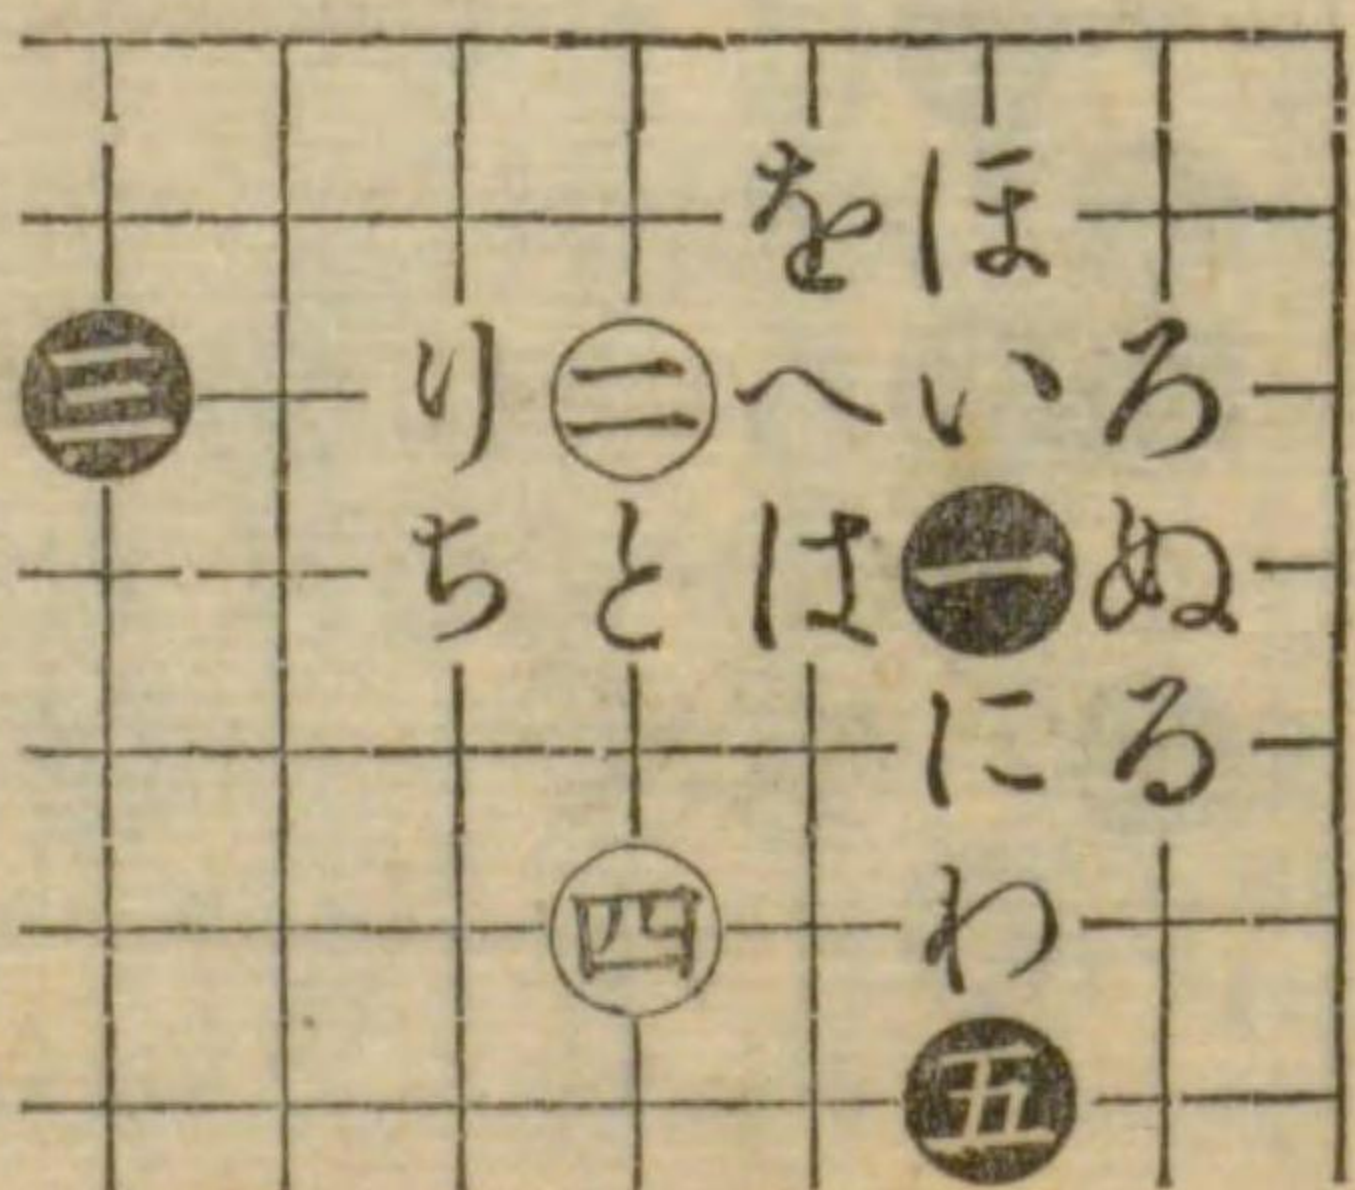 をほ
三り二へいろ
ちとは一ぬ
にる
四わ
五